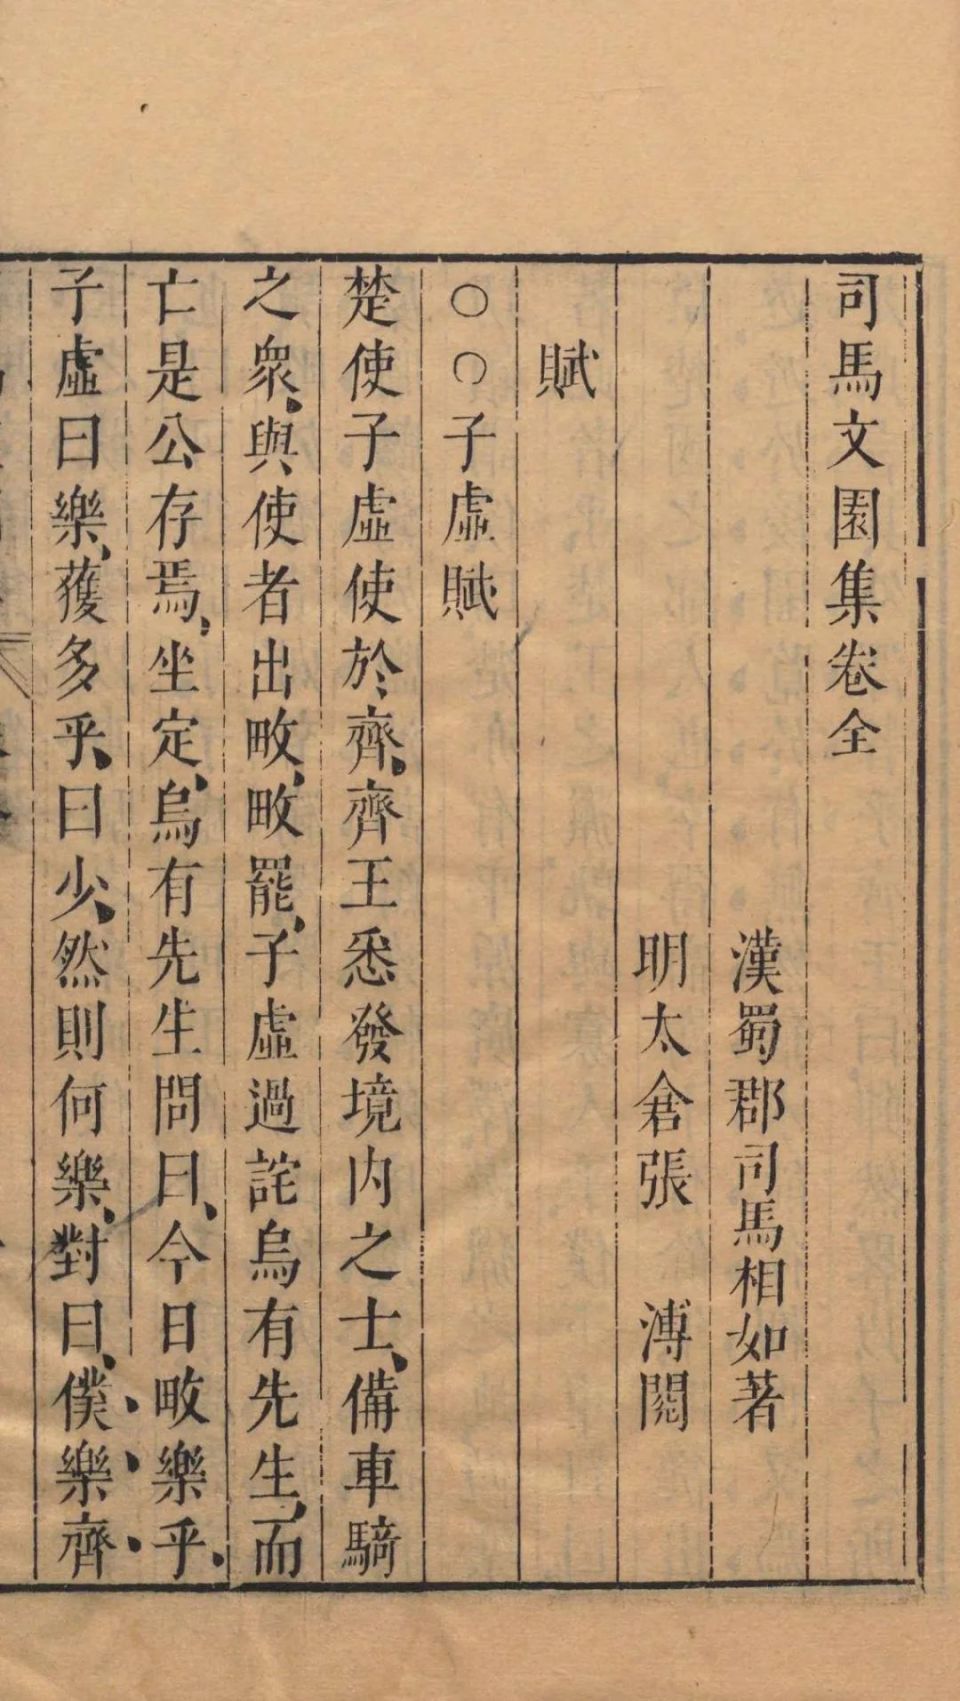 司馬文園集卷全
漢蜀郡司馬相如著
明太倉張 溥閱
賦
○○子虛賦
楚使子虛使於齊、齊王悉發境內之士、備車騎
之衆、與使者出畋、畋罷、子虛過詫烏有先生、而
亡是公存焉、坐定、烏有先生問曰、今日畋樂乎、
子虛曰樂、獲多乎、曰少、然則何樂、對曰、僕樂齊